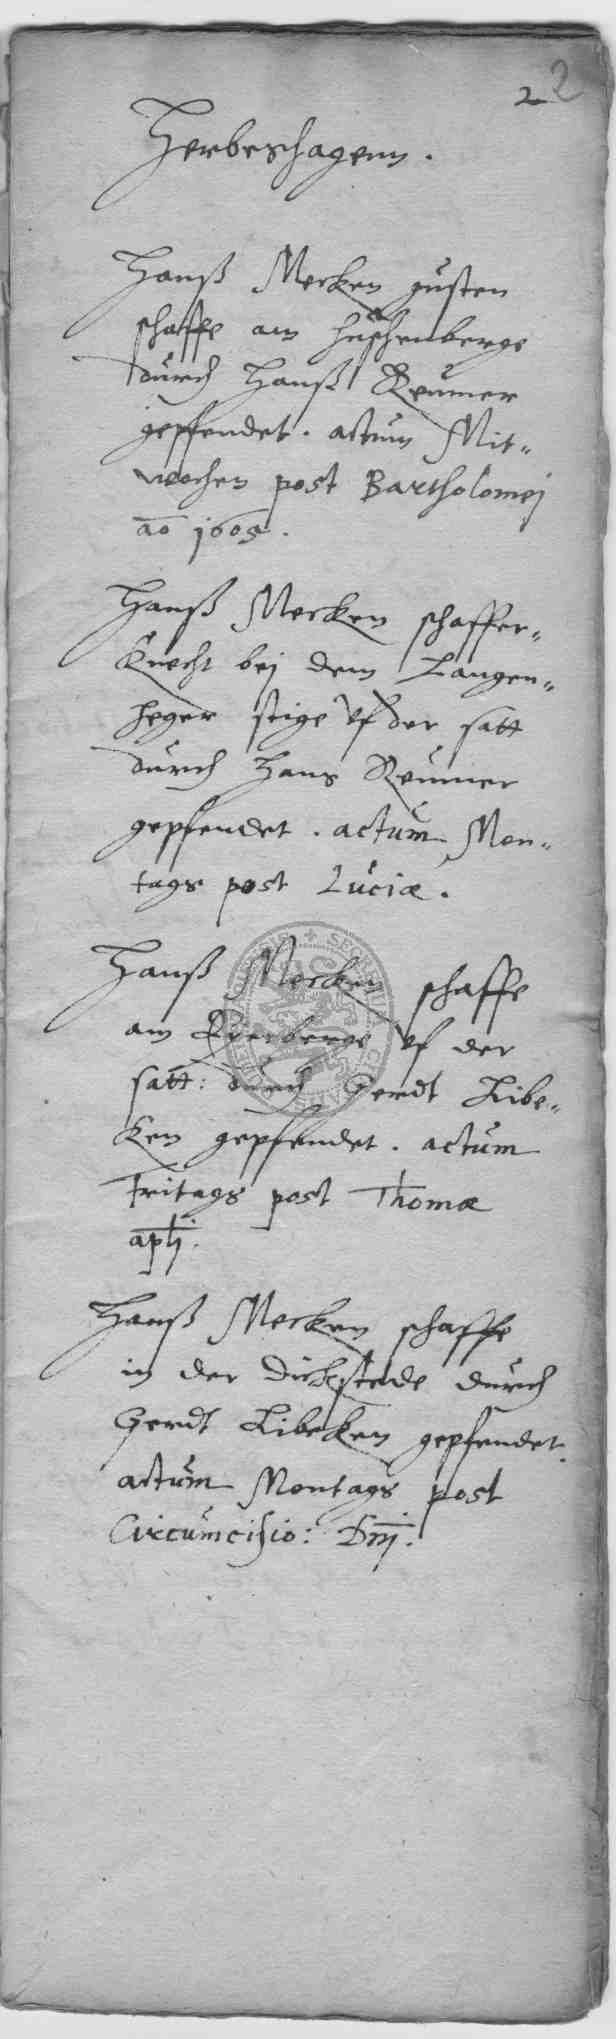 2 2
Herbershagenn.
Hanß Merken gusten
schaffe am Heschenberge
durch Hanß Reumer
gepfendet. actum Mit=
wochen post Bartholomej
ao 1605.
Hanß Merken schaffer=
knecht bej dem Langen=
heger stige vf der satt
durch Hans Reumer
gepfendet. actum Mon=
tags post Luciæ.
Hanß Merken schaffe
am vf der
satt: durch Gerdt Libe=
ken gepfendet. actum
Fritags post Thomæ
aplj.
Hanß Merken schaffe
in der durch
Gerdt Libeken gepfendet.
actum Montags post
Circumcisio: Dnj.